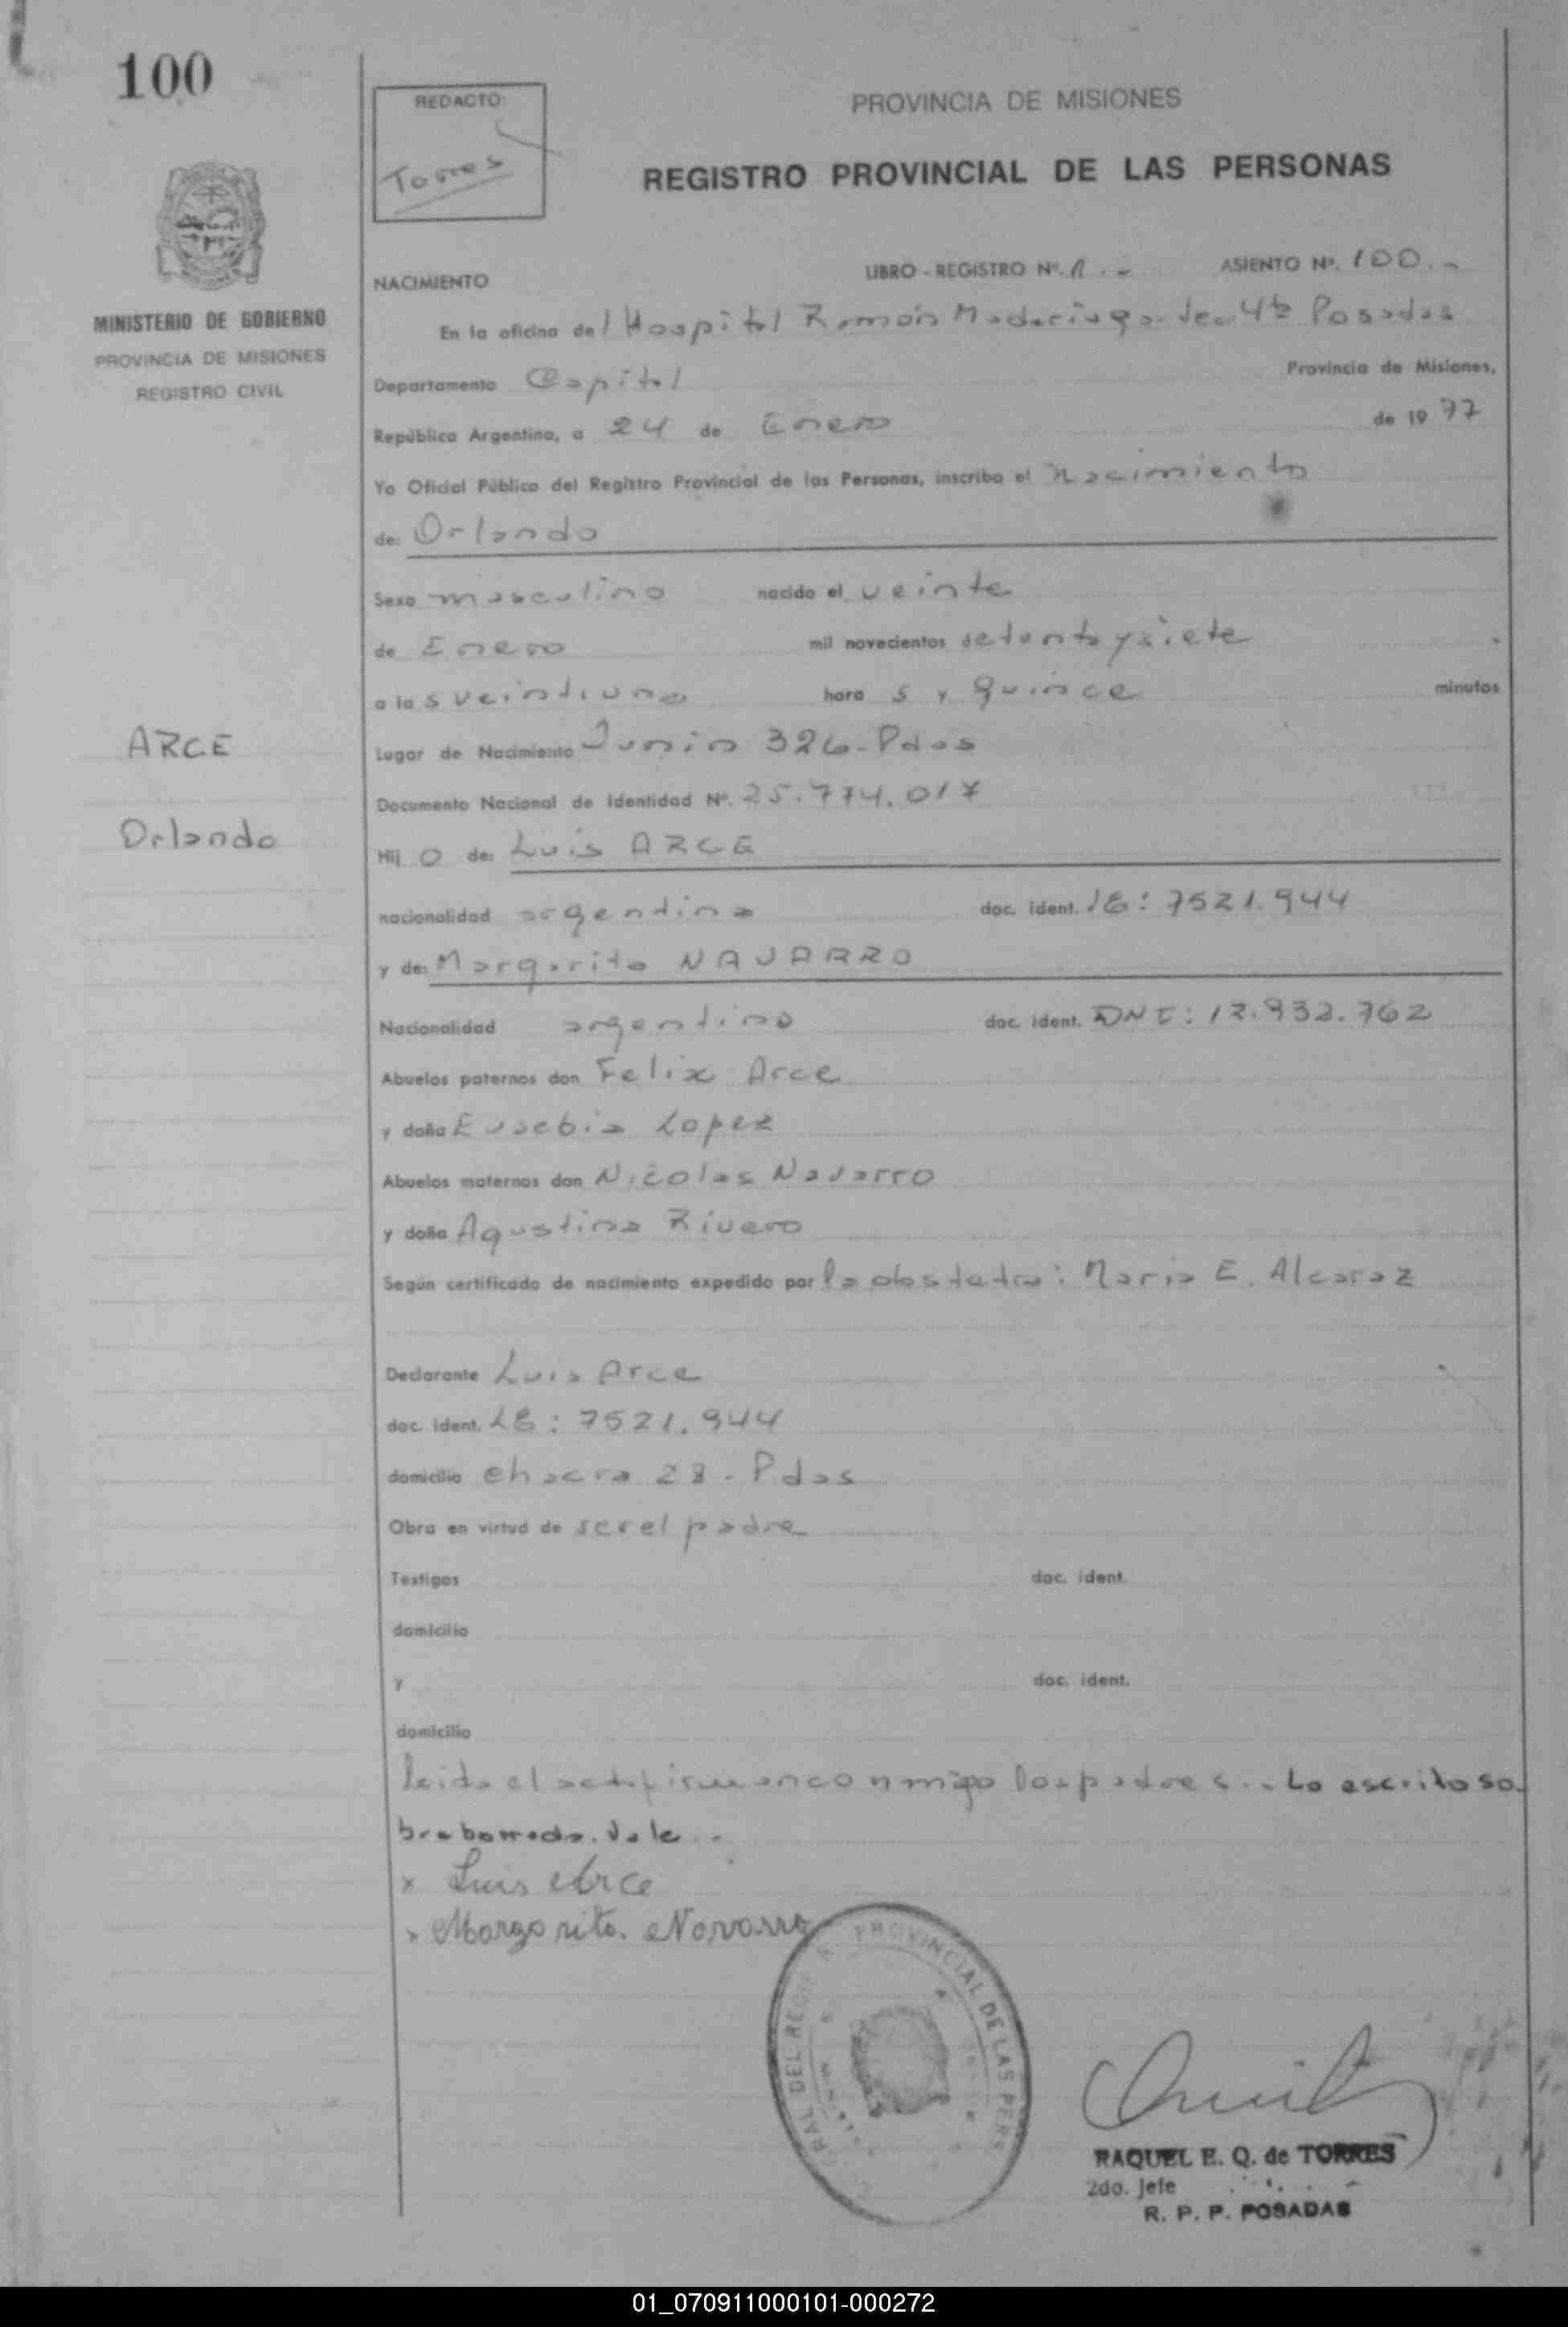 100
REDACTO:
Torres
PROVINCIA DE MISIONES
REGISTRO PROVINCIAL DE LAS PERSONAS
MINISTERIO DE GOBIERNO
PROVINCIA DE MISIONES
REGISTRO CIVIL
NACIMIENTO LIBRO - REGISTRO Nº. 1.- ASIENTO Nº. 100.-
En la oficina del Hospital Ramón Madariaga Posadas
Departamento Capital Provincia de Misiones,
República Argentina, a 24 de Enero de 1977
Yo Oficial Público del Registro Provincial de las Personas, inscribo el nacimiento
de: Orlando
Sexo masculino nacido el veinte
de Enero mil novecientos setenta y siete
a las veintiuna hora s y quince minutos
Lugar de Nacimiento Junin 326-Pdas
Documento Nacional de Identidad Nº. 25.774.017
ARCE
Orlando
Hij o de: Luis ARCE
nacionalidad argentina doc. ident. LE: 7521.944
y de: Margarita NAVARRO
Nacionalidad argentina doc. ident. DNI: 12.932.762
Abuelos paternos don Felix Arce
y doña Eusebia Lopez
Abuelos maternos don Nicolas Navarro
y doña Agustina Rivero
Según certificado de nacimiento expedido por la obstetra: Maria E. Alcaraz
Declarante Luis Arce
doc. ident. LE: 7521.944
domicilio chacra 28-Pdas
Obra en virtud de ser el padre
Testigos doc. ident.
domicilio
y doc. ident.
domicilio
leida el acta firman conmigo los padres.- Lo escrito so-
bre borrado. Vale.-
x Luis Arce
x Margarita Navarro
PROVINCIAL DE LAS PERS
RAL DEL REGI
RAQUEL E. Q. de TORRES
2do. Jefe
R. P. P. POSADAS
01_070911000101-000272